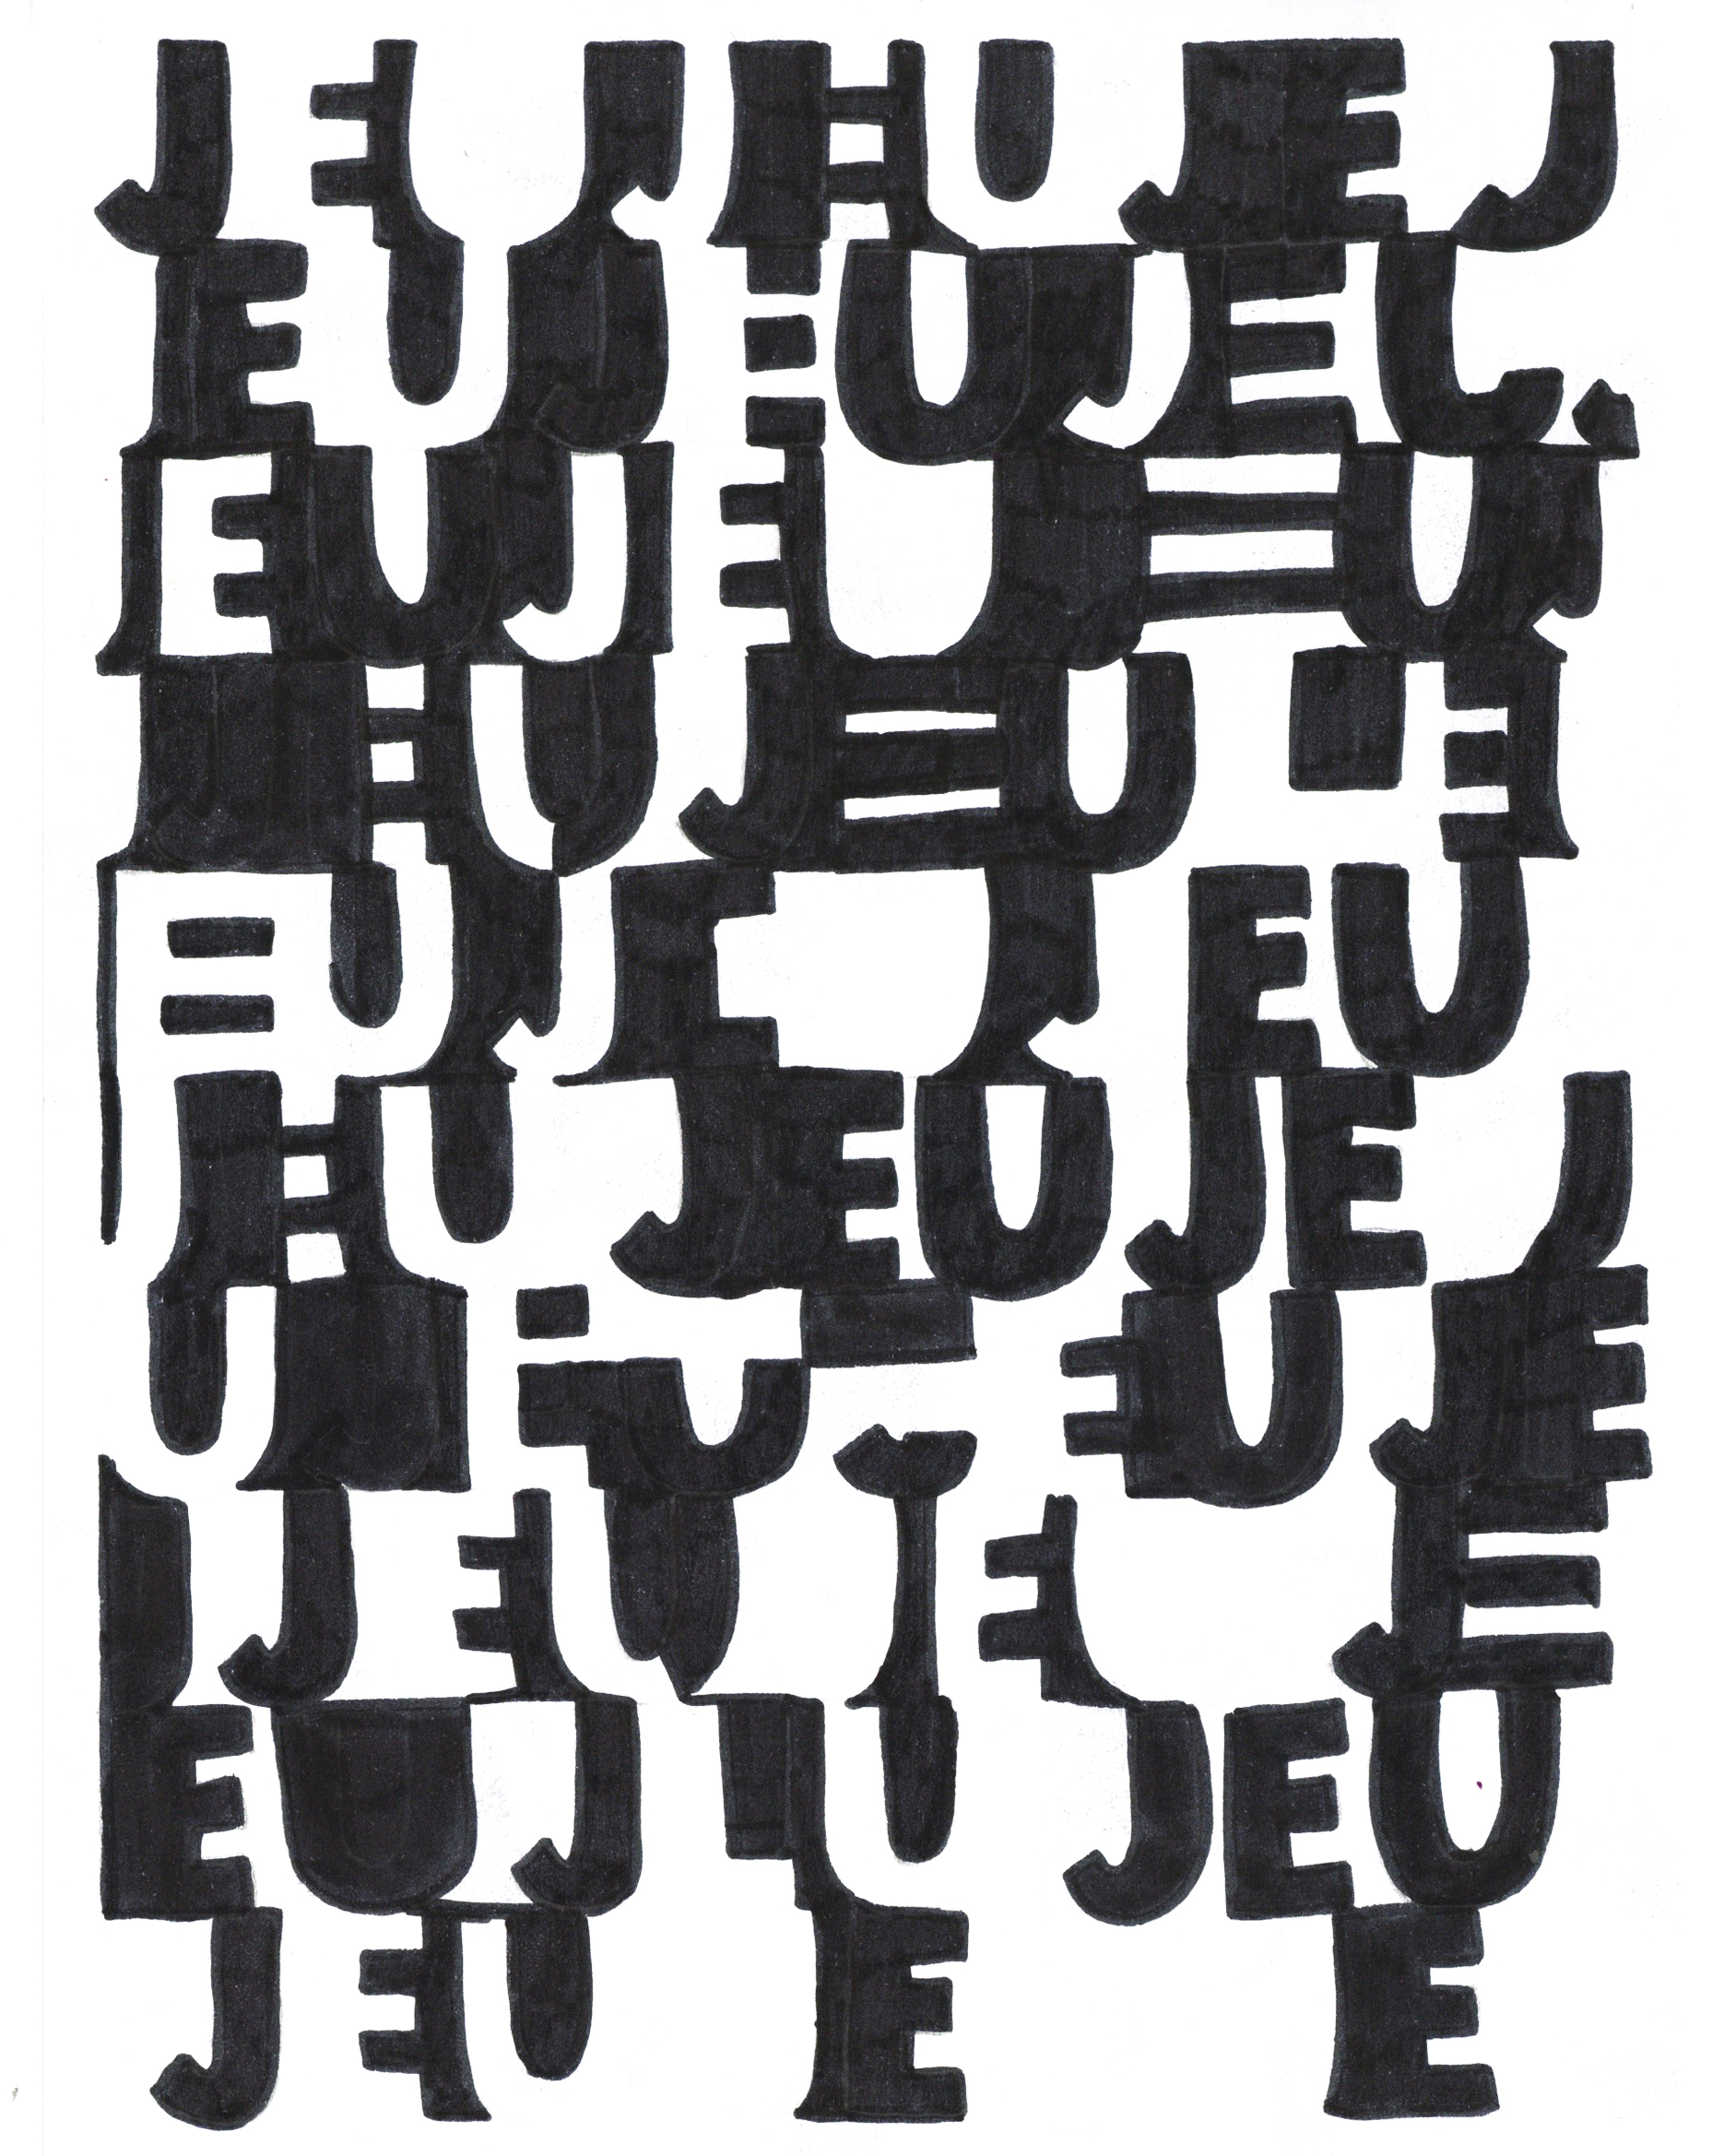 JEUJEUJEUJ
EUJEUJEUJ
EUJEUJEUJ
JEUJEU
EUJEUJEU
JEUJEUJEUJ
UJEUJEUJE
UJEUJEUJE
EUJEUJEU
JEUJEUJE